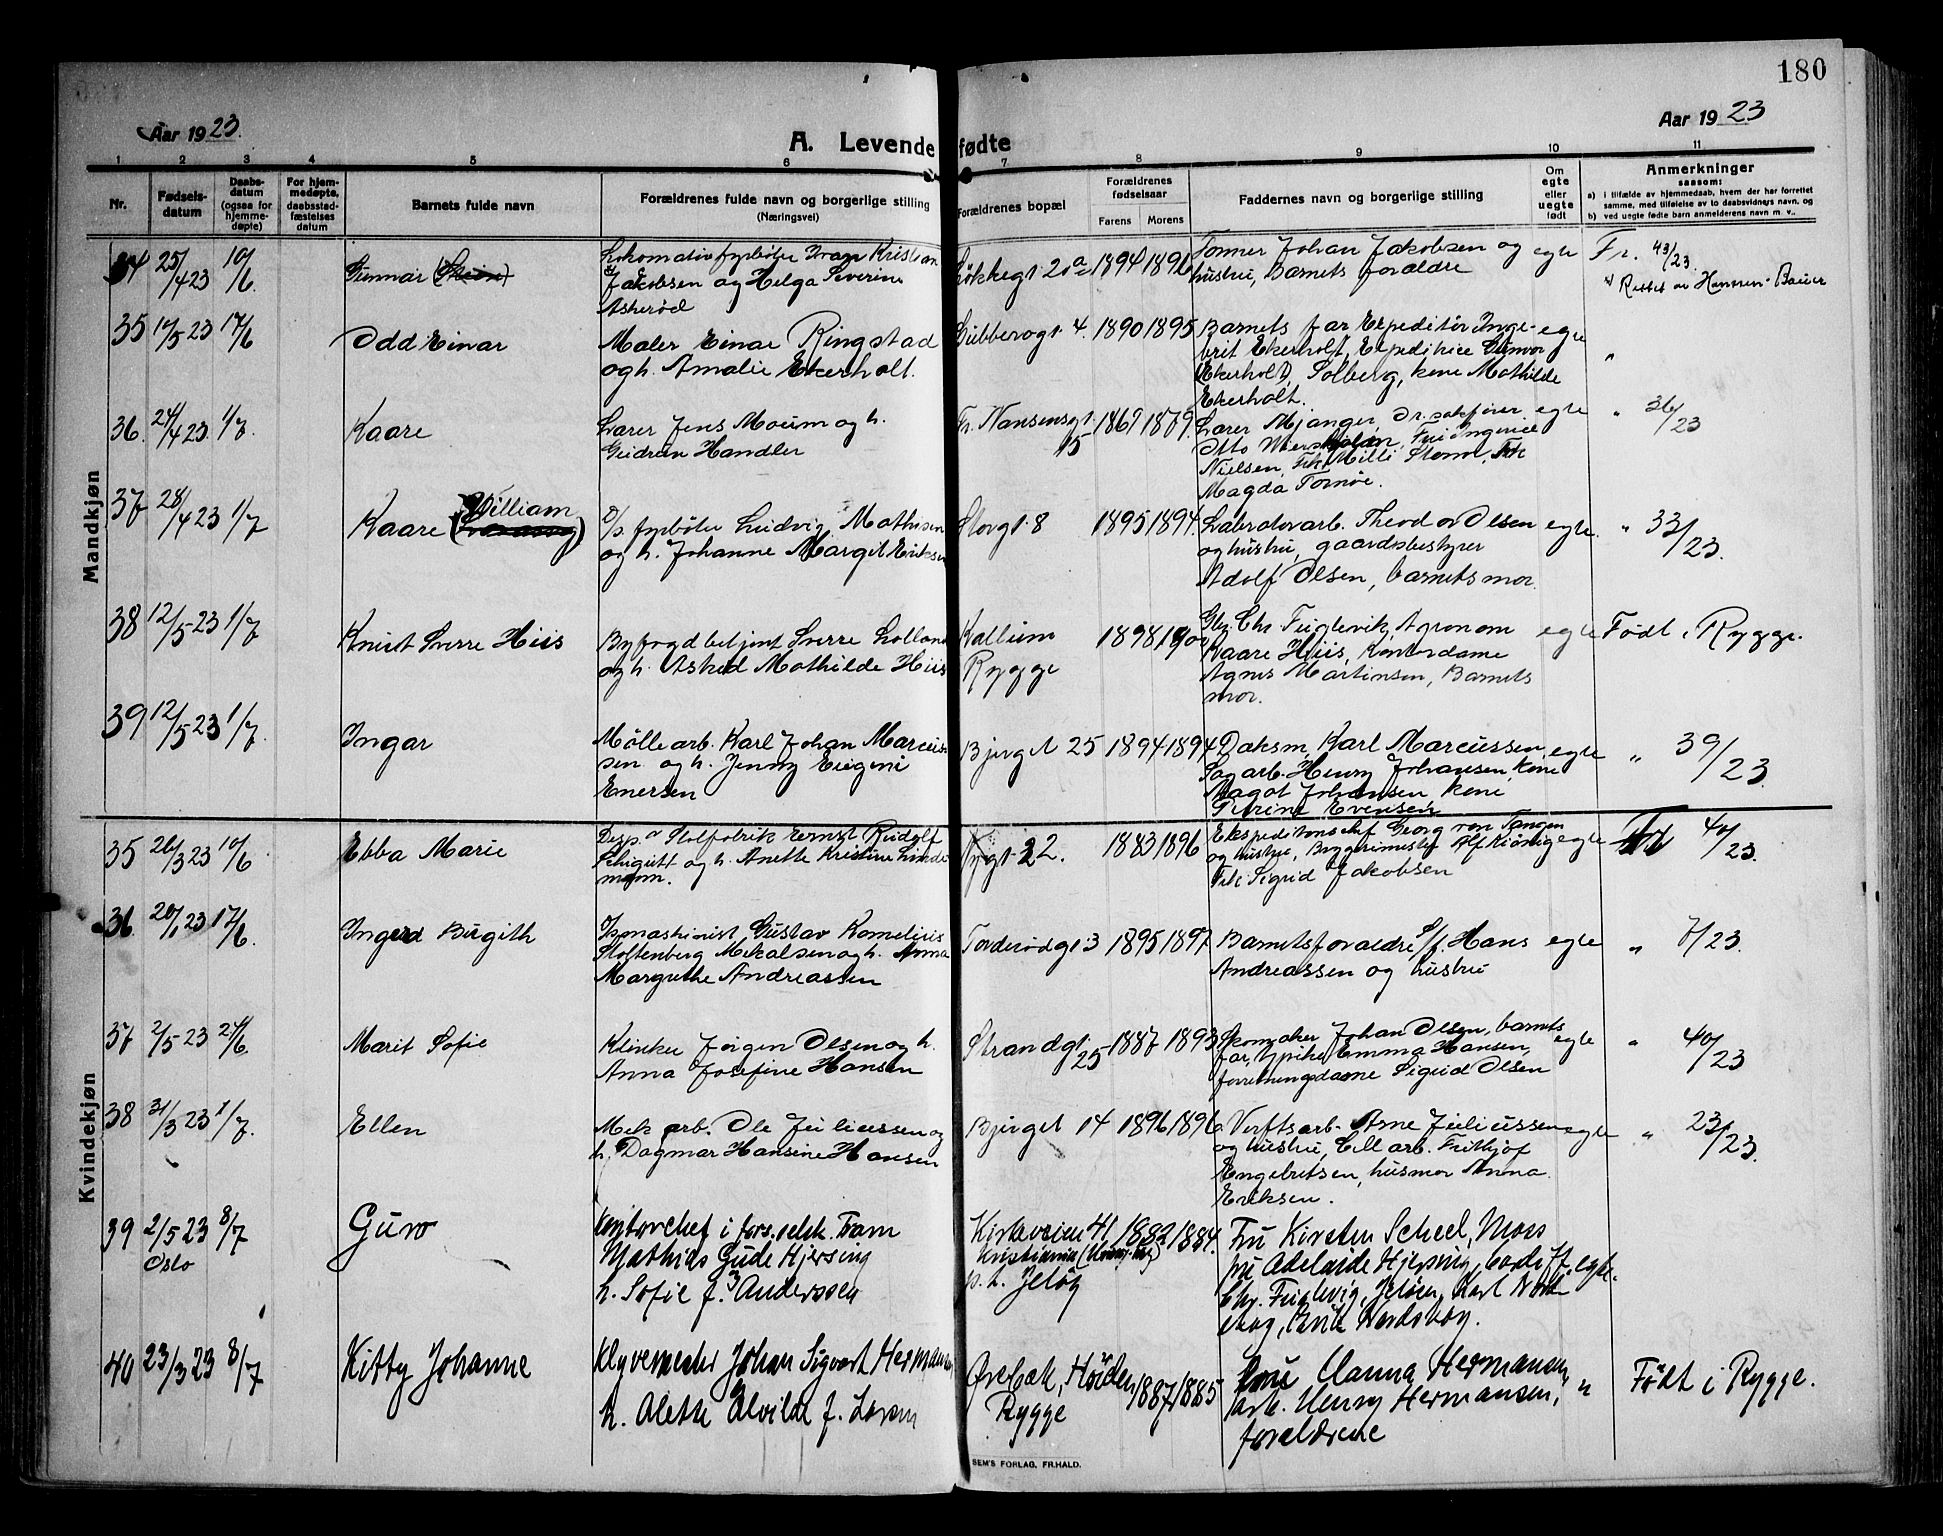 180
Aar 1923.
A. Levende fødte
Aar 1923
1 2 3 4 5 6 7 8 9 10 11
Nr.
Fødsels-
datum
Daabs-
datum
(ogsaa for
hjemme-
døpte)
For hjem-
medøpte,
daabsstad-
fæstelses
datum
Barnets fulde navn
Forældrenes fulde navn og borgerlige stilling
(Næringsvei)
Forældrenes bopæl
Forældrenes
fødselsaar
Farens Morens
Faddernes navn og borgerlige stilling
Om
egte
eller
uegte
født
Anmerkninger
saasom:
a) i tilfælde av hjemmedaab, hvem der har forrettet
samme, med tilføielse av to daabsvidners navn, og
b) ved uegte fødte barn anmelderens navn m. v..
Mandkjøn
34 25/4 23 10/6
Gunnar
Lokomotivfyrbøter Kristian
Jakobsen og Helga Severine
Askerød
Løkkegt 20a 1894 1896
Tømmer Johan Jakobsen og
hustru, Barnets forældre
egte
Fr. 43/23
Rettet av Hanssen-Bauer
35 10/5 23 17/6
Odd Einar
Maler Einar Ringstad
og h. Amalie Ekerholt.
Gubberogt 4. 1890 1895
Barnets far Expeditør Inge-
brit Ekerholt, Expeditrice Gunvor
(Ekerholt) Solberg, kone Mathilde
Ekerholt.
egte "
36. 24/4 23. 1/7.
Kaare
Lærer Jens Moum og h.
Gudrun Handler
Fr. Nansensgt. 15 1869 1879.
Lærer Mjanger, Or. sakfører
Otto Wiersholm, Fru Ingerid
Nielsen, Frk Milli Storm, Frk
Magda Tornøe.
egte " 36/23
37 28/4 23 1/7
Kaare (William
D/s. fyrbøter Ludvig Mathisen
og h. Johanne Margit Eriksen
Storgt. 8 1895 1894.
Labratorarb. Theodor Olsen
og hustru, gaardsbestyrer
Adolf Olsen, barnets mor.
egte. " 33/23.
38 12/5 23 1/7
Knut Sverre Hiis
Byfogdbetjent Sverre Lolland
og h. Astrid Mathilde Hiis
Kallum
Rygge 1898 1900
Gbr. Chr Fuglevik, Agronom
Kaare Hiis, Kontordame
Agnes Martinsen, Barnets
mor.
egte Født i Rygge.
39 12/5 23 1/7
Ingar
Møllearb. Karl Johan Marcus-
sen og h. Jenny Eugeni
Enersen
Bjerget 25 1894 1894
Daksm. Karl Marcussen,
Sagarb. Henry Johansen, kone
Magot Johansen kone
Petrine Evensen
egte " 39/23.
Kvindekjøn
35 26/3 23 10/6
Ebba Marie
Disp. Stolfabrik Ernst Rudolf
og h. Anette Kristine Linde-
mann.
22. 1883 1896
Ekspeditionschef Georg von Tangen
og hustru, Byggmester Alf
Frk Sigrid Jakobsen
egte Fr 40/23.
36. 20/1 23 17/6.
Ingerd Birgith
Gustav Kornelius
Stoltenberg Mikalsen og h. Anna
Margrethe Andreassen
Torderødgt 3 1895 1897
Barnets forældre S/f Hans
Andreassen og hustru
egte " 7/23.
37 2/5 23 24/6.
Marit Sofie
Klinker Jørgen Olsen og h.
Anna Josefine Hansen
Strandgt. 25 1887 1893
Skomaker Johan Olsen, barnets
far, pike Emma Hansen,
forretningsdame Sigrid Olsen
egte " 40/23
38 31/3 23 1/7.
Ellen
Mek arb. Ole Juliussen og
h. Dagmar Hansine Hansen
Bjerget 14 1896 1896
Verftsarb. Arne Juliussen
og hustru, Cell arb. Frithjof
Engebretsen, husmor Anna
Eriksen.
egte " 23/23.
39 2/5 23 8/7
Oslo
Guro
Kontorchef i fors.selsk. Fram
Mathias Gude Hjersing
h. Sofie f. Anderssen
Kirkeveien 41,
Kristiania
p.t. Jeløy 1882 1884.
Fru Kirsten Scheel, Moss
fru Adelaide Hjersing, Gards fr.
Chr. Fuglevig, Jeløen, Karl Nord-
skog, Erik Nordskog.
egte.
40 23/3 23 8/7
Kitty Johanne
Klyvemester Johan Sigvart Hermansen
h. Alette Alvilde f. Larsen
Ørebæk, Høiden
Rygge 1887 1885
Fru Hanna Hermansen,
arb. Henry Hermansen,
forældrene
" Født i Rygge.
SEM'S FORLAG, FR.HALD.